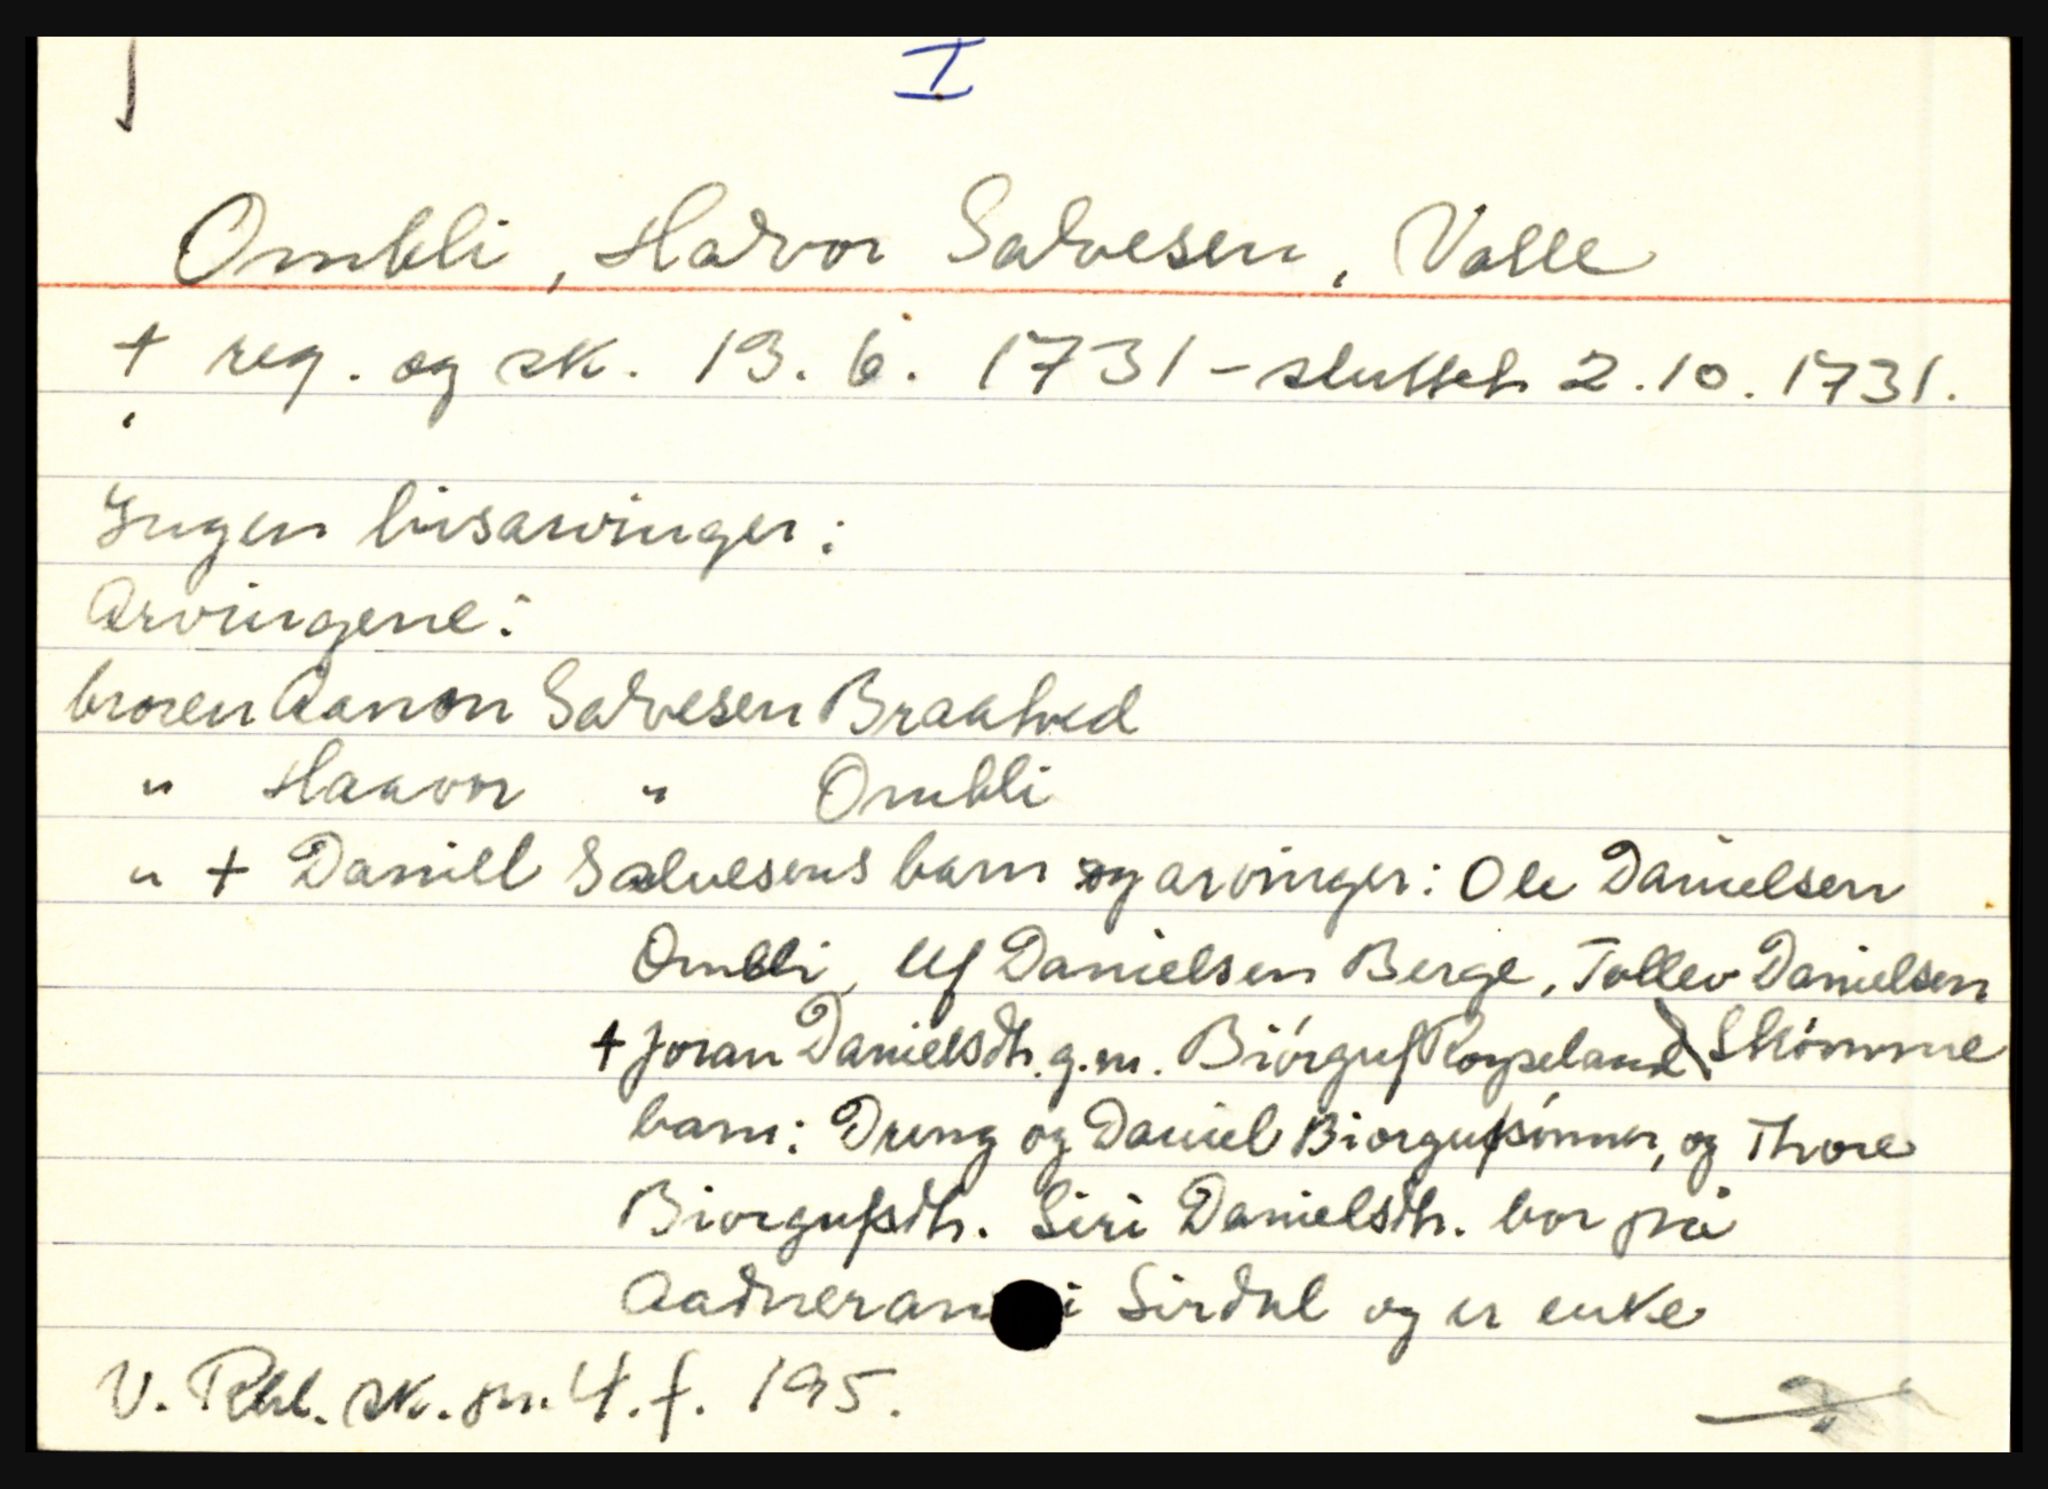 I
Ombli, Halvor Salvesen, Valle
+ reg. og sk. 13. 6. 1731 - sluttet 2.10.1731.
Ingen livsarvinger:
Arvingene:
broren Aanon Salvesen Braatved
" Haavor " Ombli
" + Daniel Salvesens barn og arvinger: Ole Danielsen
Ombli, Ulf Danielsen Berge, Tollev Danielsen
+ Joran Danielsdt. g.m. Biórguf Røyseland Skómme
barn: Dreng og Daniel Biorgufsónner, og Thore
Biorgufsdt. Siri Danielsdt. bor på
Aadneram i Sirdal og er enke
V. Rbl. sk. pr. 4. f. 195.